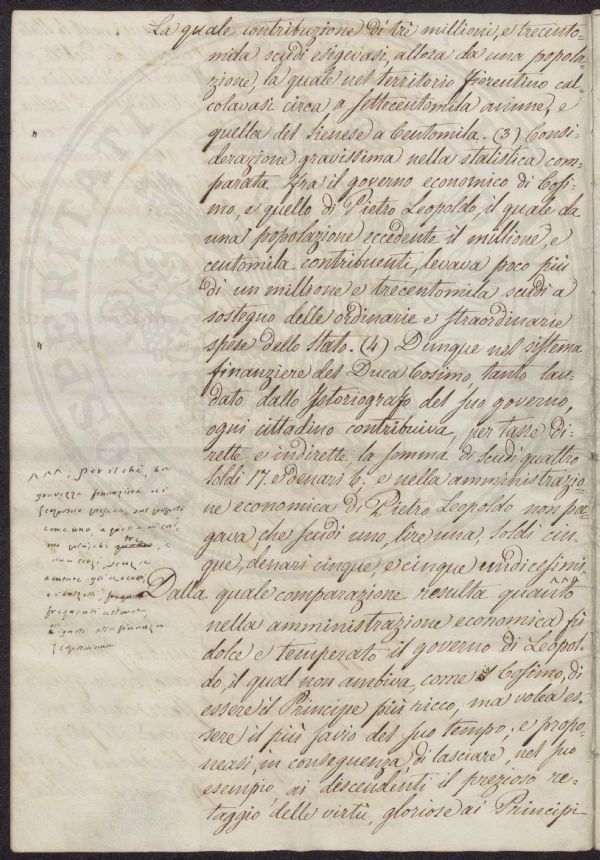 La quale contribuzione di trè millioni, e trecento-
mila scudi esigevasi, allora da una popola-
zione, la quale nel territorio fiorentino cal-
colavasi circa a settecentomila anime, e
quella del Sienese a Centomila. (3) Consi-
derazione gravissima nella statistica com-
parata tra il governo economico di Cosi-
mo, e quello di Pietro Leopoldo, il quale da
una popolazione eccedente il millione, e
centomila contribuenti, levava poco più
di un millione e trecentomila scudi a
sostegno delle ordinarie e straordinarie
spese dello Stato. (4) Dunque nel sistema
finanziere del Duca Cosimo, tanto lau-
dato dallo Istoriografo del suo governo,
ogni cittadino contribuiva, per tasse di-
rette e indirette la somma di scudi quattro
soldi 17. e denari 6. e nella amministrazio-
ne economica di Pietro Leopoldo non pa-
gava che scudi uno, lire una, soldi cin-
que, denari cinque e cinque undicesimi.
Dalla quale comparazione resulta quanto
nella amministrazione economica fù
dolce e temperato il governo di Leopol-
do, il qual non ambiva, come Cosimo, di
essere il Principe più ricco, ma volea es-
sere il più savio del suo tempo: e propo-
neasi in conseguenza di lasciare nel suo
esempio, ai descendenti il prezioso re-
taggio delle virtù, gloriose ai Principi
^^^. Per il chè, la
gravezza finanziera di
Leopoldo pesava sul popolo
come uno, e quella di Cosi-
mo più, che tre, e
due terzi, senza
frequenti allora,
e ignoti alla finanza
Leopoldina
PROSPERITATI